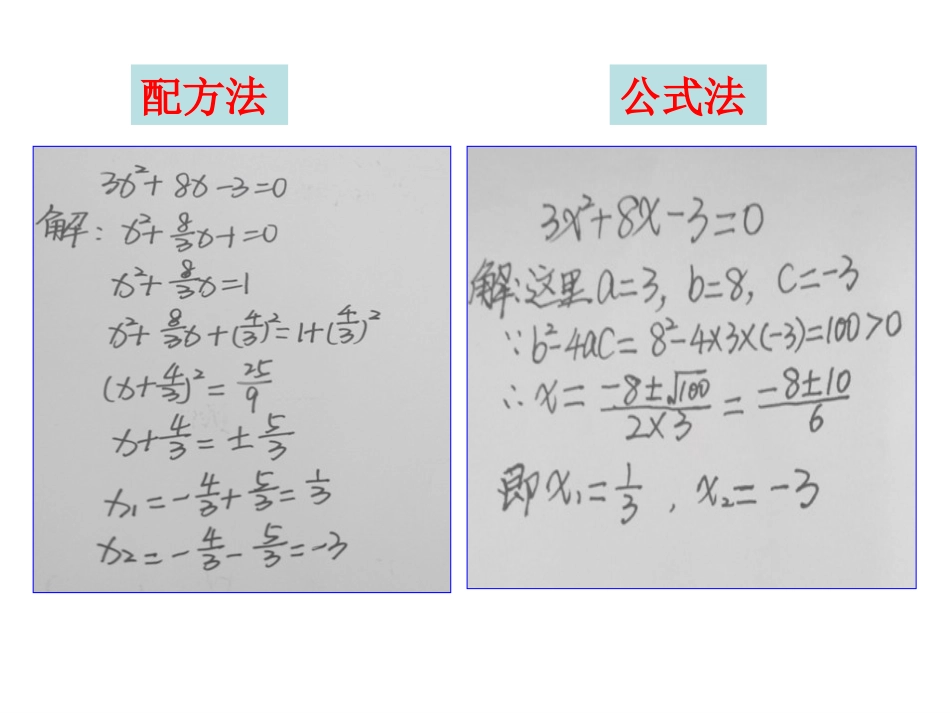 配方法
3x²+8x-3=0
解：x²+8/3x-1=0
x²+8/3x=1
x²+8/3x+(4/3)²=1+(4/3)²
(x+4/3)²=25/9
x+4/3=±5/3
x₁=-4/3+5/3=1/3
x₂=-4/3-5/3=-3
公式法
3x²+8x-3=0
解：这里a=3, b=8, c=-3
∵b²-4ac=8²-4×3×(-3)=100>0
∴x=(-8±√100)/(2×3)=(-8±10)/6
即x₁=1/3, x₂=-3